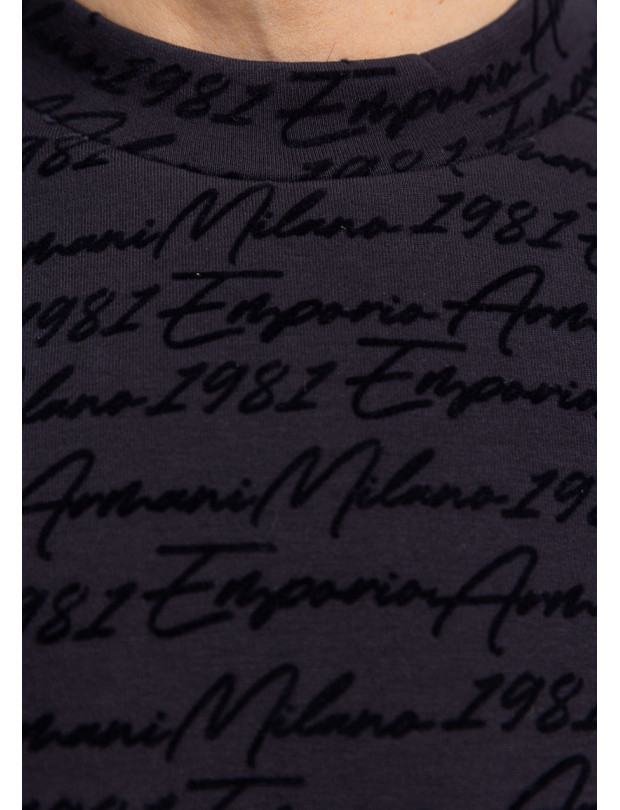 Milano 1981 Emporio A
1981 Arma
Armani Milano 1981 E
1981 Emporio Arma
Milano 1981 Emporio
Armani Milano 198
1981 Emporio Arma
Armani Milano 1981